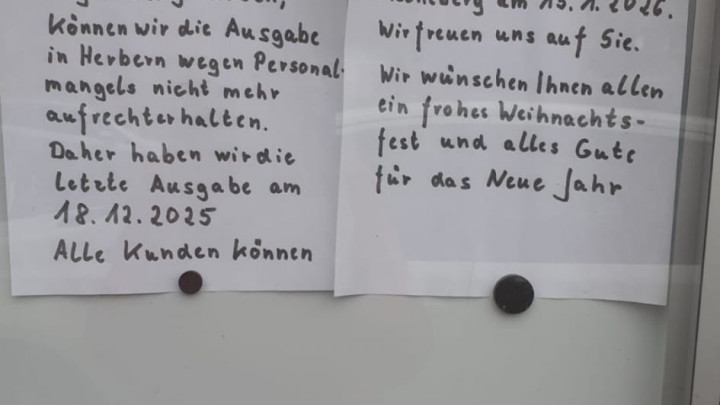 können wir die Ausgabe
in Herbern wegen Personal-
mangels nicht mehr
aufrechterhalten.
Daher haben wir die
letzte Ausgabe am
18.12.2025
Alle Kunden können
am 15.1.2026.
Wir freuen uns auf Sie.
Wir wünschen Ihnen allen
ein frohes Weihnachts-
fest und alles Gute
für das Neue Jahr